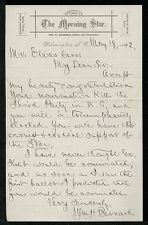 The Morning Star.
Wilmington, N. C., May 19, 1892
Mr. Elias Carr
My Dear Sir:
Accept
my hearty congratulations
Your nomination kills the
Third Party in N. C. and
you will be triumphantly
elected. You will have the
support of
the Star.
I have never thought
that would be nominated;
and as soon as I saw the
first ballot I predicted that
you would be nominated
Very Sincerely
Wm H Bernard